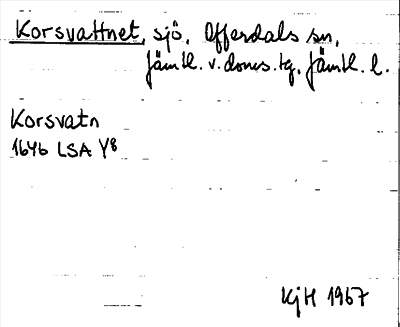 Korsvattnet, sjö, Offerdals sn,
Jämtl. v. doms. tg. Jämtl. l.
Korsvatn
1646 LSA Y8
KjH 1967